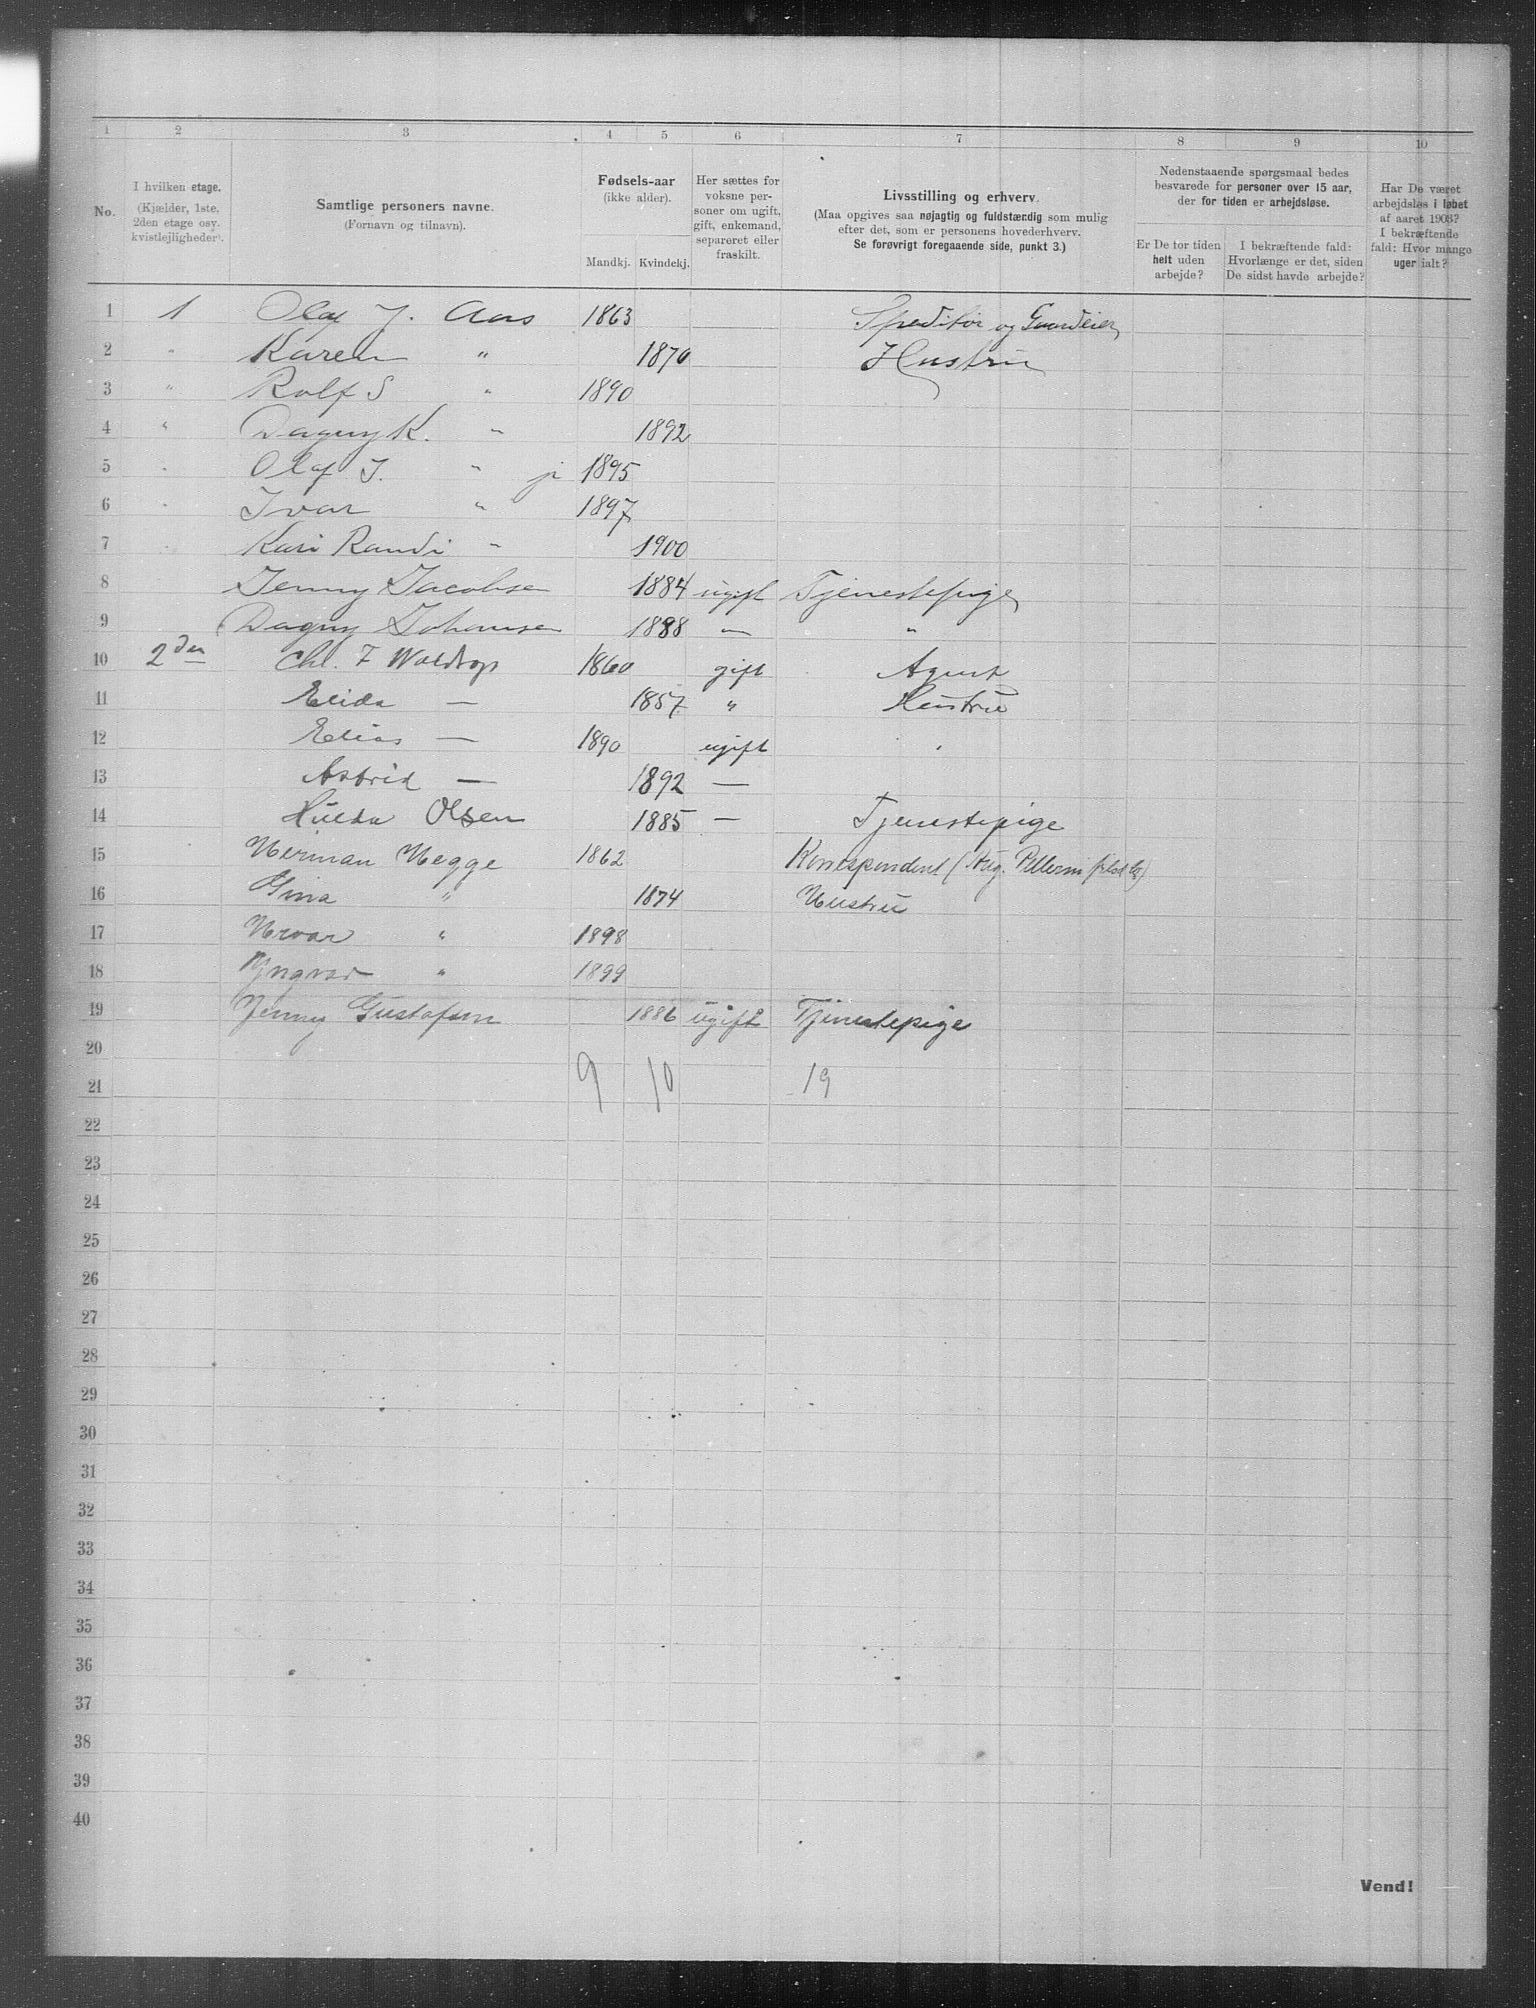 1 2 3 4 5 6 7 8 9 10
No.
I hvilken etage.
(Kjælder, 1ste,
2den etage osv.
kvistlejligheder).
Samtlige personers navne.
(Fornavn og tilnavn).
Fødsels-aar
(ikke alder).
Mandkj. Kvindekj.
Her sættes for
voksne per-
soner om ugift,
gift, enkemand,
separeret eller
fraskilt.
Livsstilling og erhverv.
(Maa opgives saa nøjagtig og fuldstændig som mulig
efter det, som er personens hovederhverv.
Se forøvrigt foregaaende side, punkt 3.)
Nedenstaaende spørgsmaal bedes
besvarede for personer over 15 aar,
der for tiden er arbejdsløse.
Er De for tiden
helt uden
arbejde?
I bekræftende fald:
Hvorlænge er det, siden
De sidst havde arbejde?
Har De været
arbejdsløs i løbet
af aaret 1903?
I bekræftende
fald: Hvor mange
uger ialt?
1 1 Olaf J. Aas 1863 Speditør og Gaardeier
2 " Karen " 1870 Hustru
3 " Rolf S " 1890
4 " Dagny K. " 1892
5 " Olaf J. " jr 1895
6 " Ivar " 1897
7 " Kari Randi " 1900
8 Jenny Jacobsen 1884 ugift Tjenestepige
9 Dagny Johansen 1888 " "
10 2den Chr. F 1860 gift Agent
11 Elida — 1857 " Hustru
12 Elias — 1890 ugift "
13 Astrid — 1892 —
14 Hulda Olsen 1885 — Tjenestepige
15 Herman Hegge 1862 Korrespondent (Aug. Pellerin fils & Co)
16 Gina " 1874 Hustru
17 " 1898
18 Yngvar " 1899
19 Jenny Gustafsen 1886 ugift Tjenestepige
20
21 9 10 19
22
23
24
25
26
27
28
29
30
31
32
33
34
35
36
37
38
39
40
Vend!